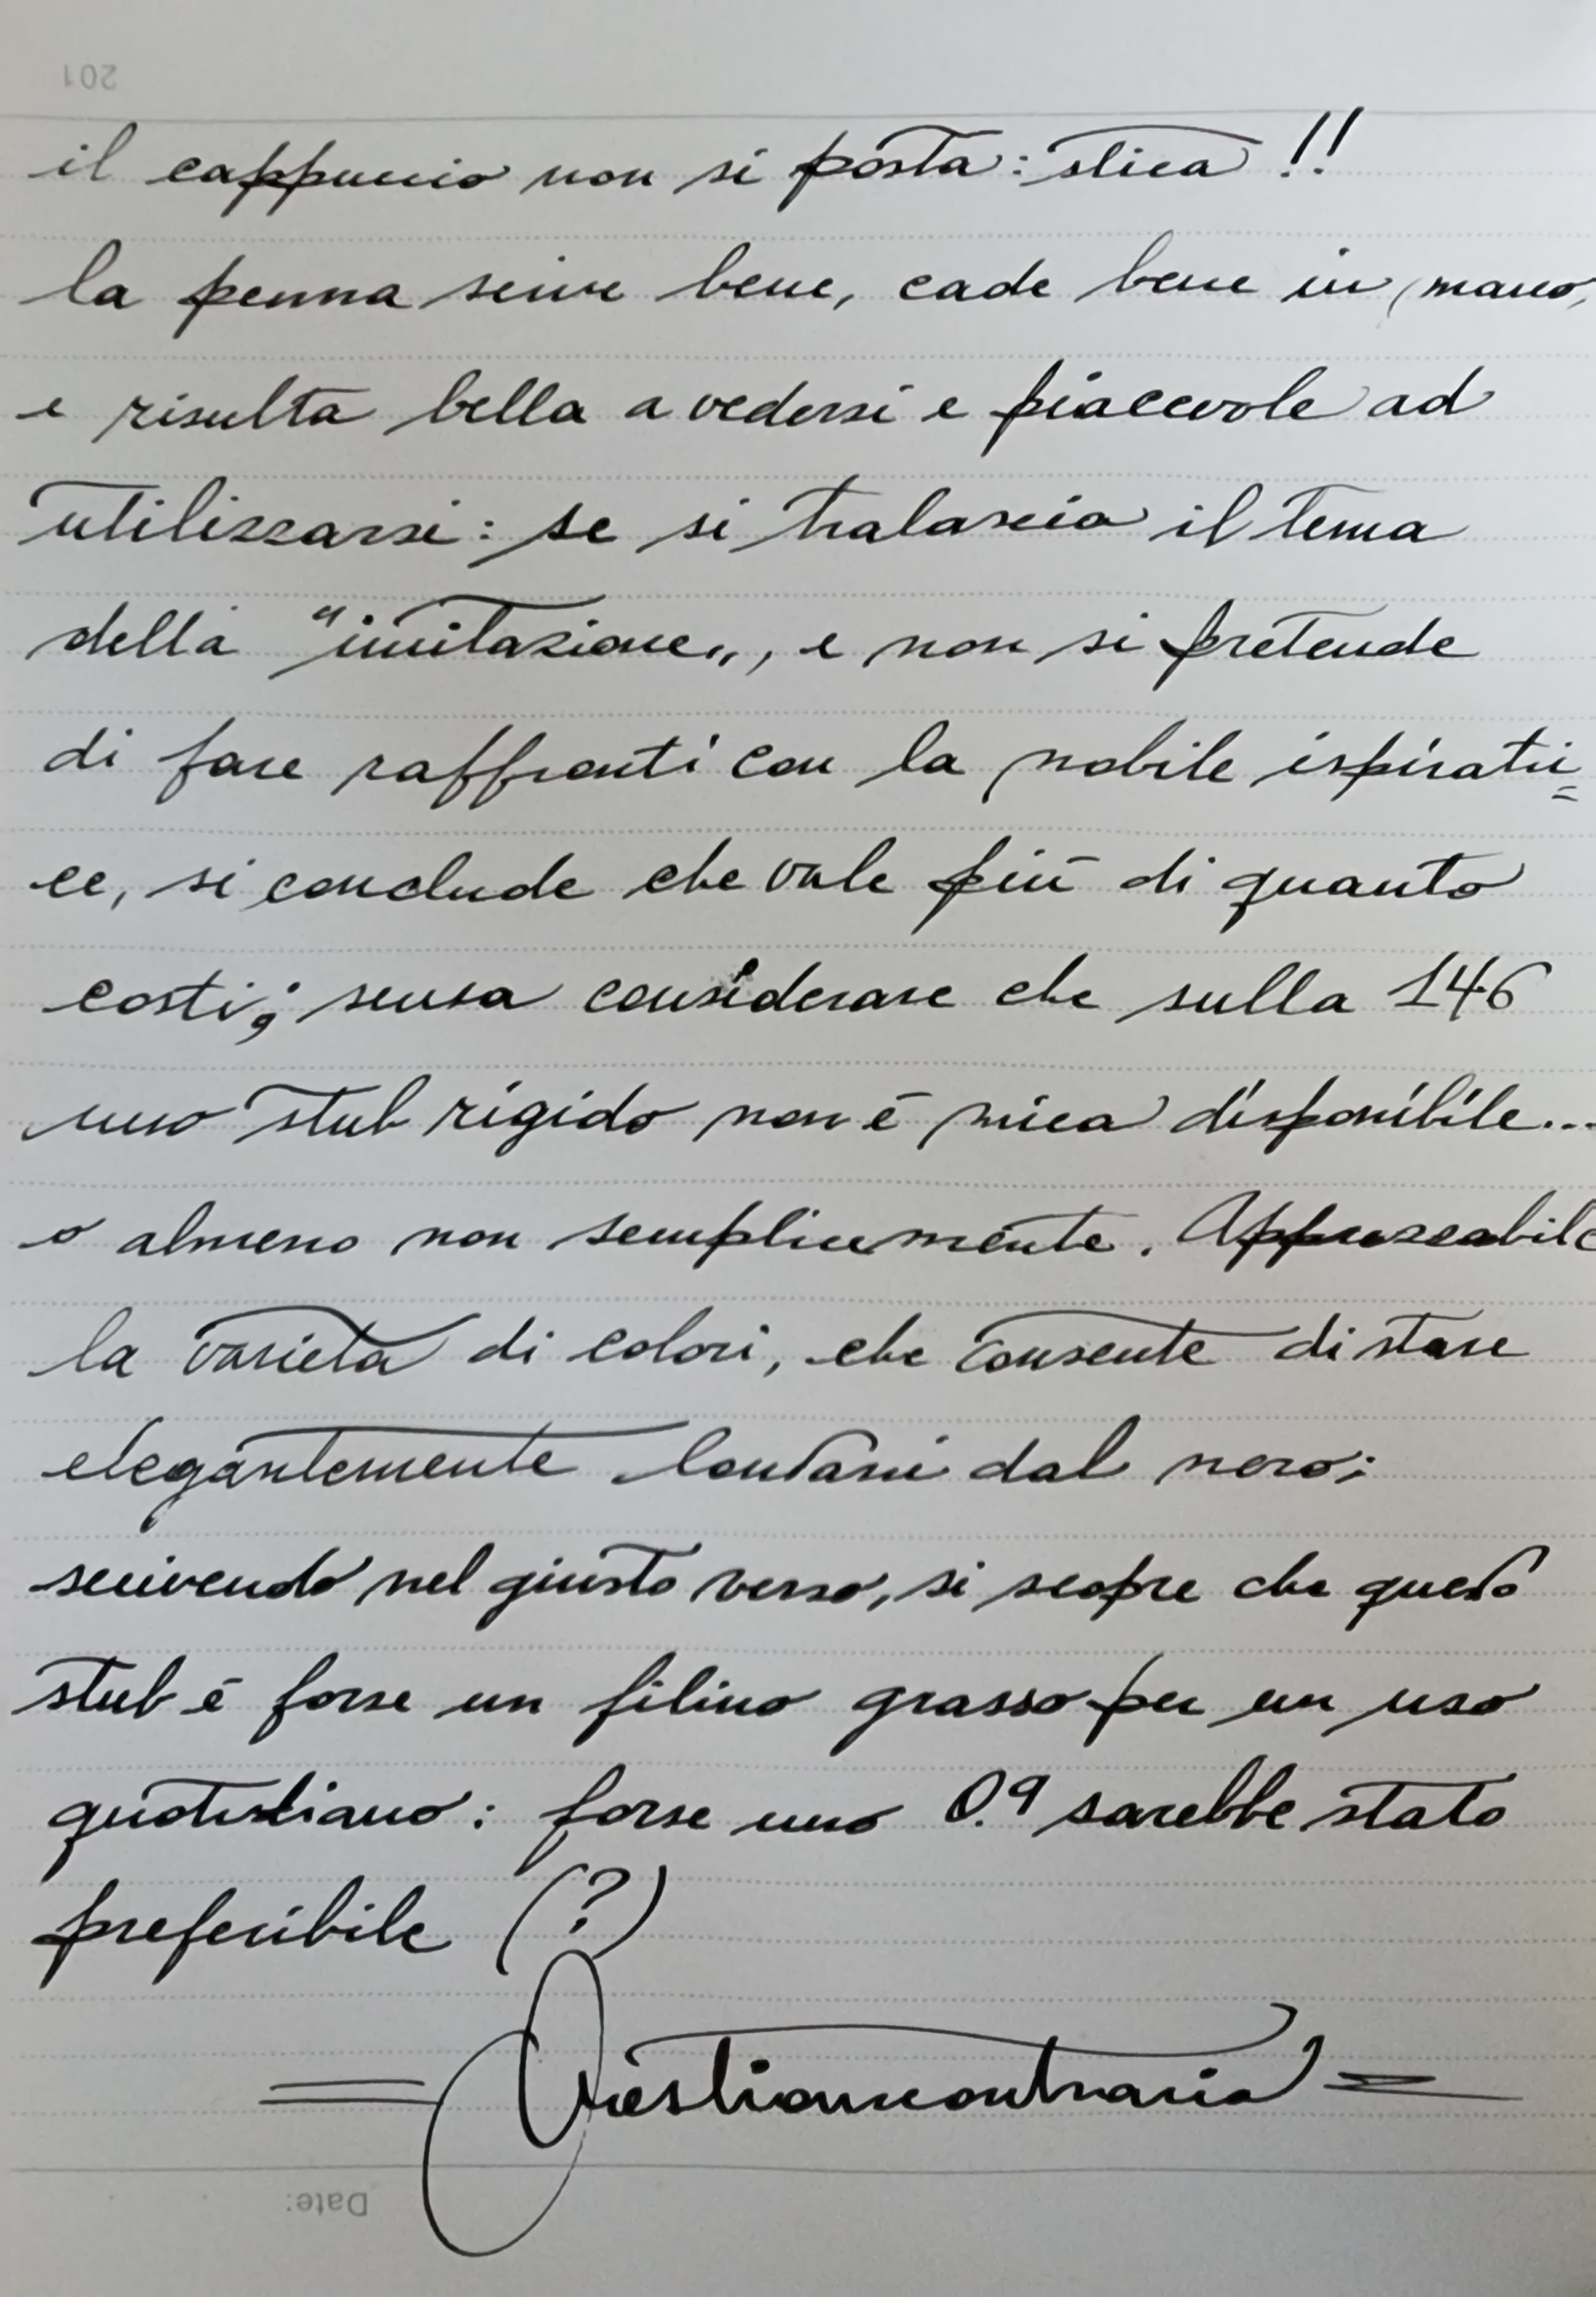 201
il cappuccio non si posta: stica!!
la penna scrive bene, cade bene in mano,
e risulta bella a vedersi e piacevole ad
utilizzarsi: se si tralascia il tema
della "imitazione", e non si pretende
di fare raffronti con la nobile ispiratri=
ce, si conclude che vale più di quanto
costi; senza considerare che sulla 146
uno stub rigido non è mica disponibile...
o almeno non semplicemente. Apprezzabile
la varietà di colori, che consente di stare
elegantemente lontani dal nero;
scrivendo nel giusto verso, si scopre che questo
stub è forse un filino grasso per un uso
quotidiano: forse uno 0.9 sarebbe stato
preferibile (?)
Date: